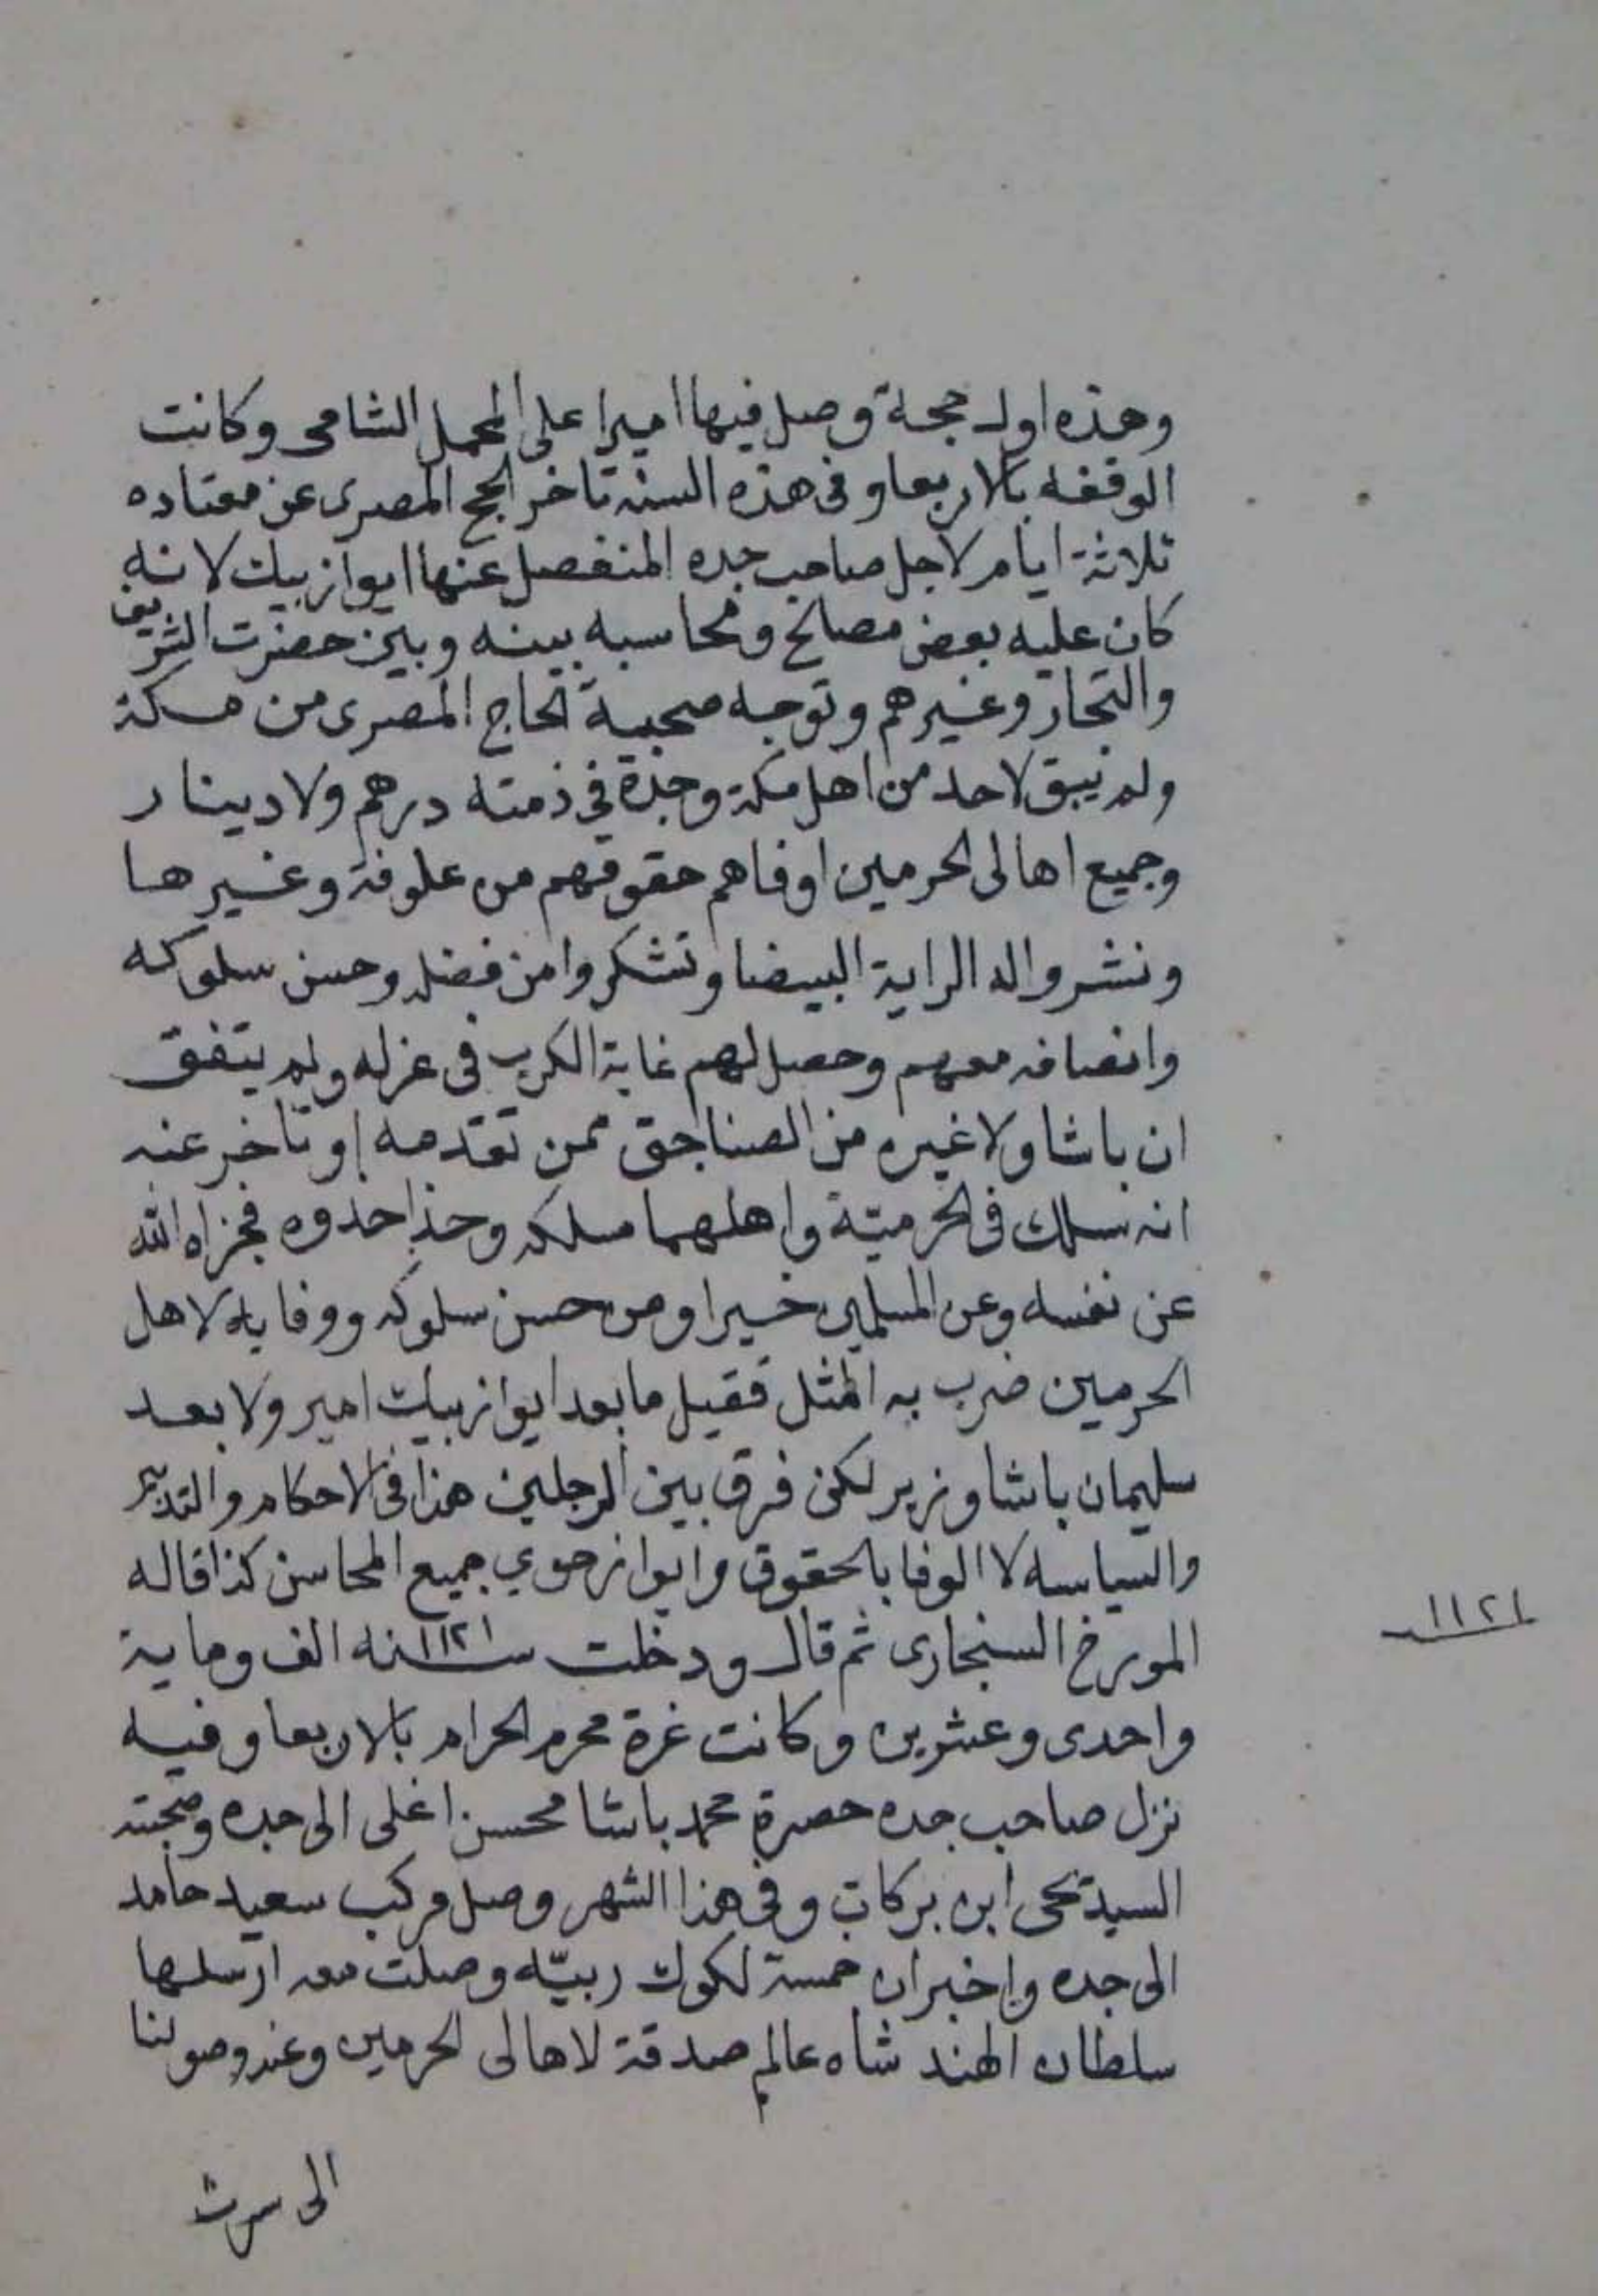 وهذه اول حجة وصل فيها اميرا على المحمل الشامى وكانت
الوقفه بالاربعا وفى هذه السنه تاخر الحج المصرى عن معتاده
ثلاثة ايام لاجل صاحب جده المنفصل عنها ايواز بيك لانه
كان عليه بعض مصالح ومحاسبه بينه وبين حضرت الشريف
والتجار وغيرهم وتوجه صحبة الحاج المصرى من مكة
ولم يبق لاحد من اهل مكة وجدة في ذمته درهم ولا دينار
وجميع اهالى الحرمين اوفاهم حقوقهم من علوفة وغيرها
ونشروا له الراية البيضا وتشكروا من فضله وحسن سلوكه
وانصافه معهم وحصل لهم غاية الكرب فى عزله ولم يتفق
ان باشا ولا غيره من الصناجق ممن تقدمه او تاخر عنه
انه سلك فى الحرمين واهلهما مسلكه وحذا حذوه فجزاه الله
عن نفسه وعن المسلمين خيرا ومن حسن سلوكه ووفايه لاهل
الحرمين ضرب به المثل فقيل ما بعد ايواز بيك امير ولا بعد
سليمان باشا وزير لكن فرق بين الرجلين هذا فى الاحكام والتدبير
والسياسه لا الوفا بالحقوق وايواز حوي جميع المحاسن كذا قاله
المورخ السنجارى ثم قال ودخلت سنه ١١٢١ الف وماية
واحدى وعشرين وكانت غرة محرم الحرام بالاربعا وفيه
نزل صاحب جده حضرة محمد باشا محسن اغلى الى جده وصحبته
السيد يحى ابن بركات وفى هذا الشهر وصل مركب سعيد حامد
الى جده واخبر ان خمسة لكوك ربيّه وصلت معه ارسلها
سلطان الهند شاه عالم صدقة لاهالى الحرمين وعند وصولنا
الى سرت
١١٢١